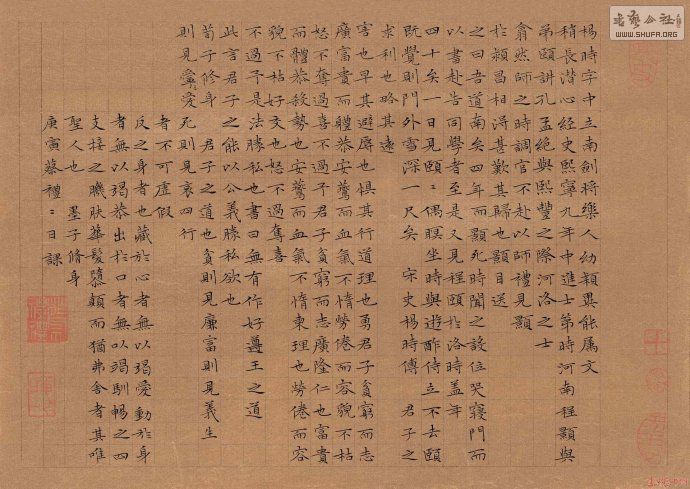 楊時字中立南劍將樂人幼穎異能屬文
稍長潜心經史熙寧九年中進士第時河南程顥與
弟頤講孔孟絶與熙豐之際河洛之士
翕然師之時調官不赴以師禮見顥
於潁昌相得甚歡其歸也顥目送
之曰吾道南矣四年而顥死時聞之設位哭寢門而
以書赴告同學者至是又見程頤於洛時蓋年
四十矣一日見頤〻偶瞑坐時與遊酢侍立不去頤
既覺則門外雪深一尺矣 宋史楊時傳 君子之
求利也略其遠
害也早其避辱也惧其行道理也勇君子貧窮而志
廣富貴而體恭安薾而血氣不惰勞倦而容貌不枯
怒不奪過喜不過予君子貧窮而志廣隆仁也富貴
而體恭殺勢也安薾而血氣不惰柬理也勞倦而容
貌不枯好文也怒不過奪喜
不過予是法勝私也書曰無有作好遵王之道
此言君子之能以公義勝私欲也
荀子修身 君子之道也貧則見廉富則見義生
則見愛死則見哀四行
者不可虛假
反之身者也藏於心者無以竭愛動於身
者無以竭恭出於口者無以竭馴暢之四
支接之肌肤華髮隳顛而猶弗舍者其唯
聖人也 墨子修身
庚寅蔡禮〻日課
WWW.SHUFA.ORG